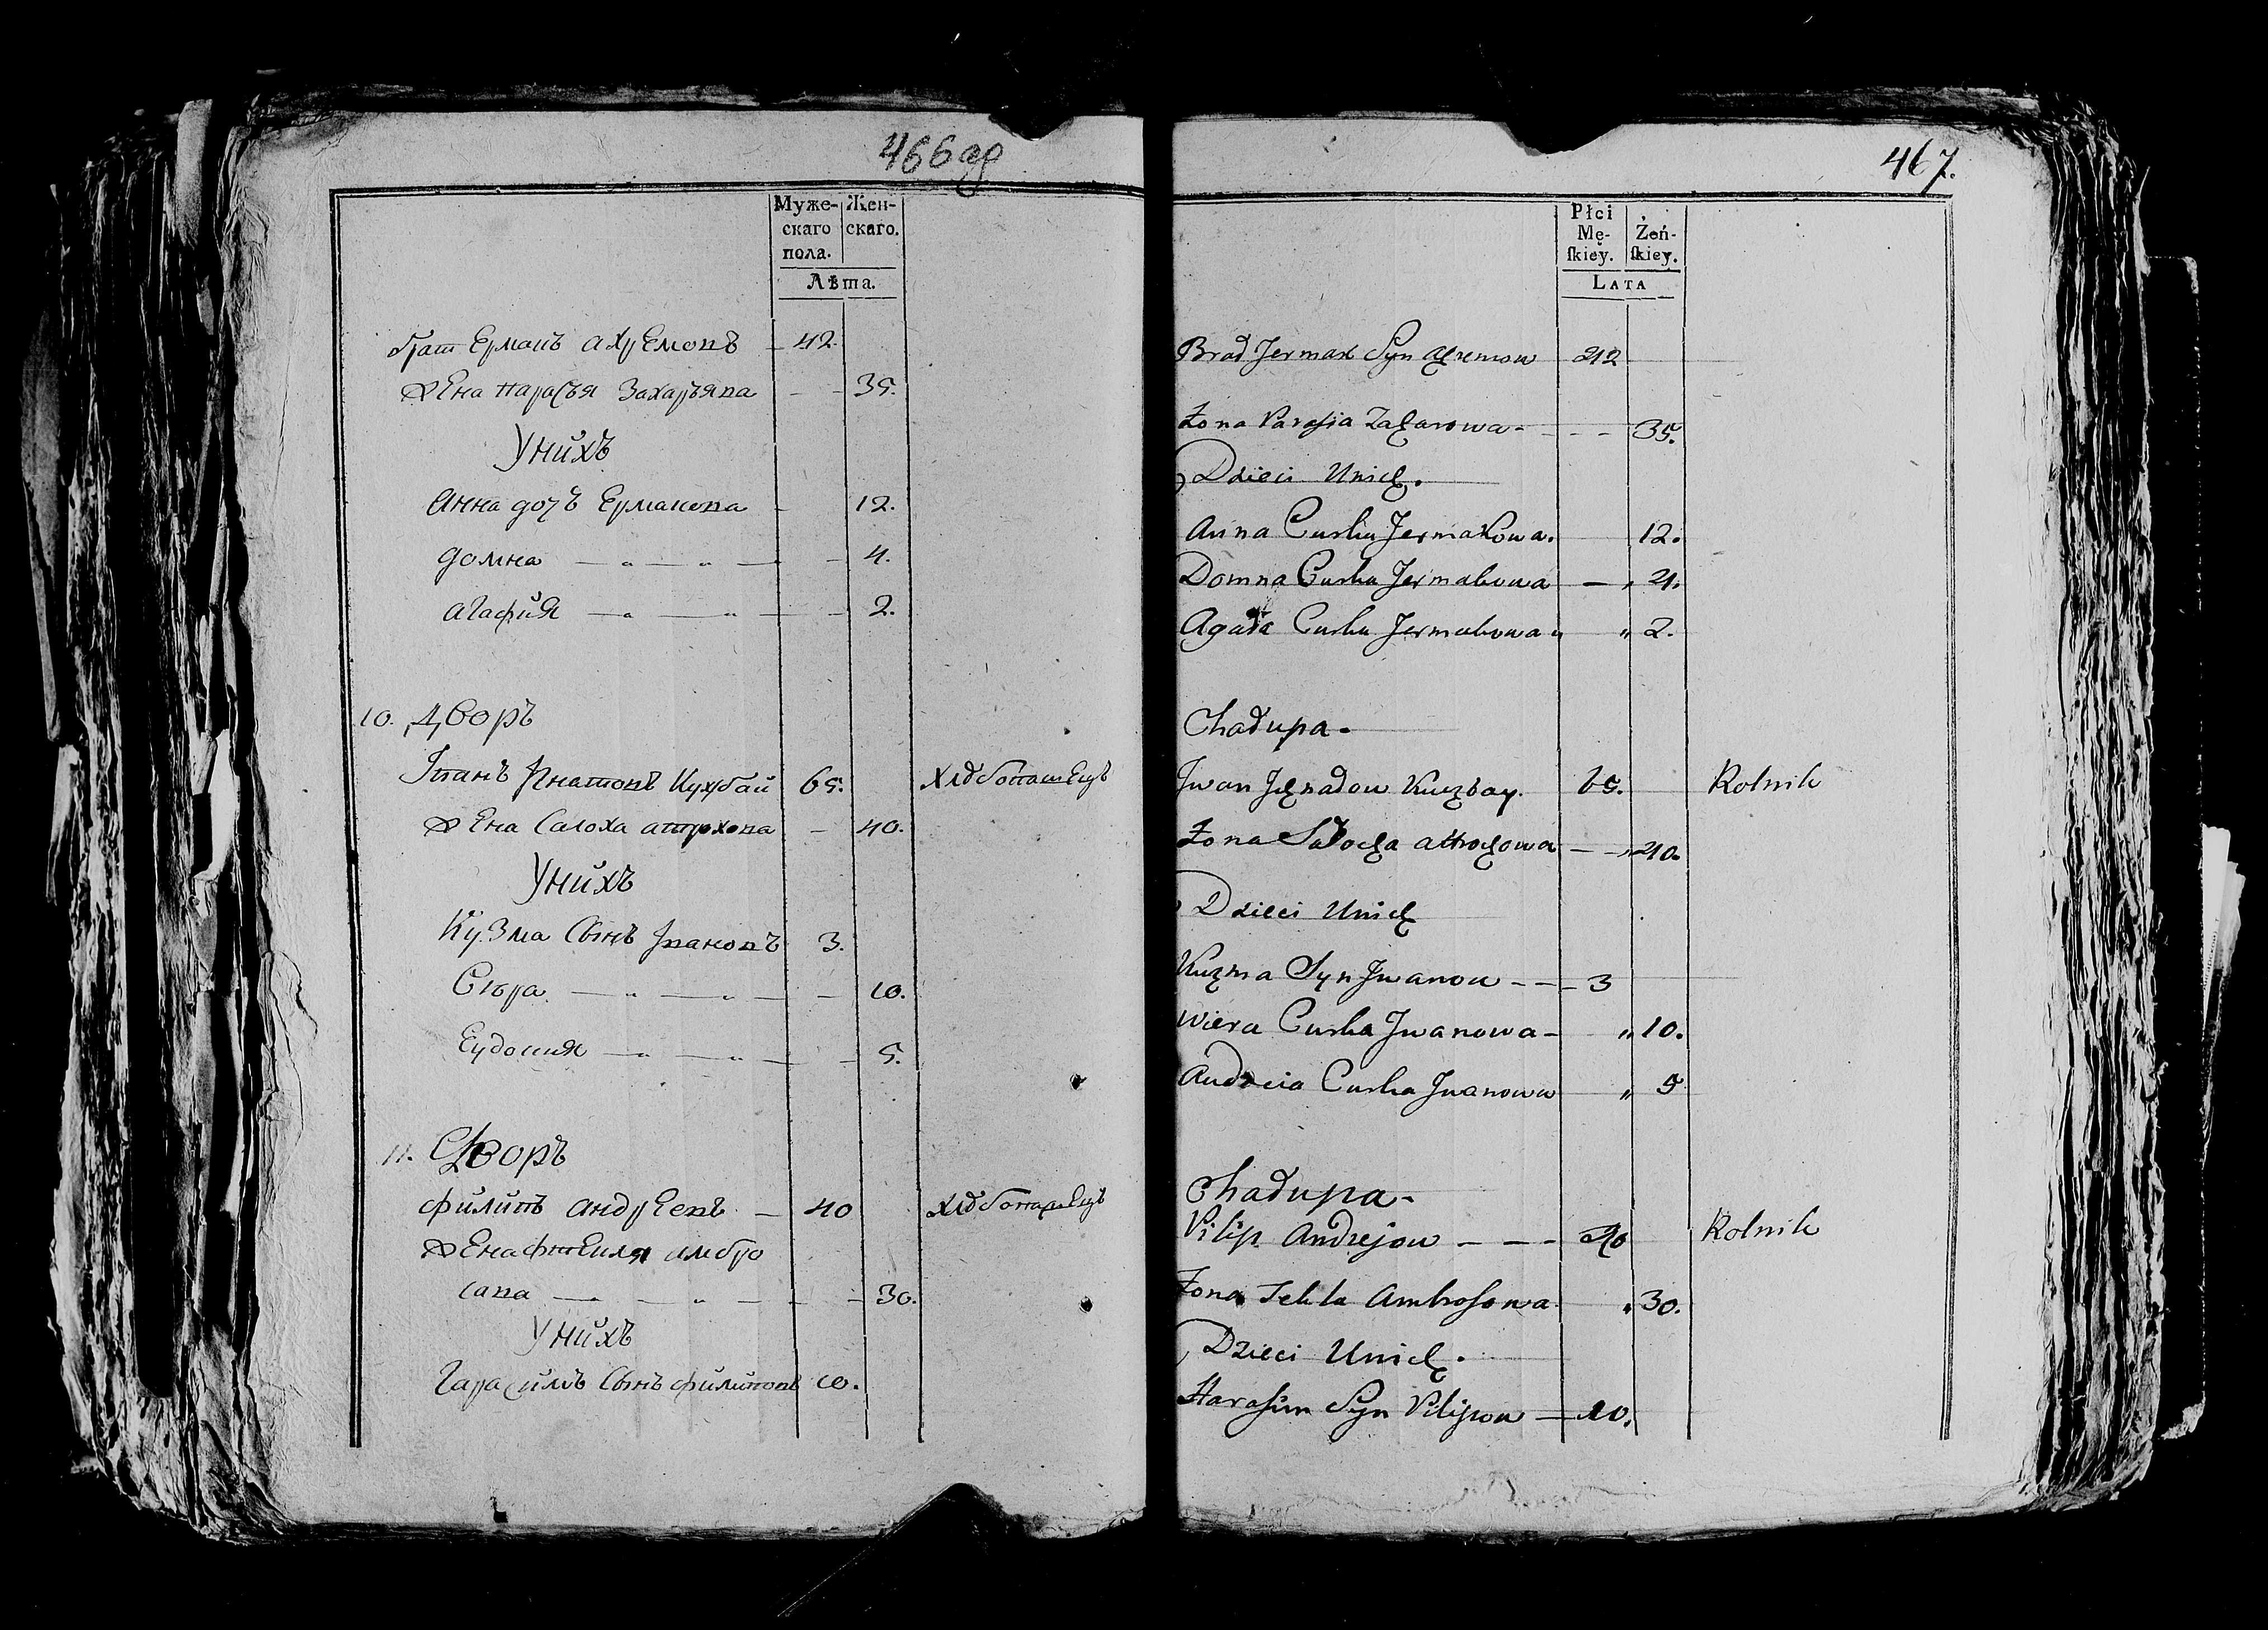 466 об
Муже- Жен-
скаго скаго.
пола.
Лѣта.
брат Ермакъ ахремовъ 42.
жена парасья Захарьява 35.
Унихъ
Анна дочъ Ермакова 12.
домна — „ — „ — 4.
агафия — „ — „ — 2.
10. дворъ
Іванъ Игнатовъ Кухбай 65. хлебопашецъ
жена Салоха атрохова 40.
Унихъ
Кузма Сынъ Івановъ 3.
Вѣра — „ — „ — 10.
Еудокия — „ — „ — 5.
11. дворъ
филипъ андреевъ — 40 хлебопашецъ
жена фтекля амбро
сава — „ — „ — 30.
Унихъ
Гарасимъ Сынъ филиповъ 10.
467.
Płci
Mę- Żeń-
ſkiey. ſkiey.
LATA
Brad Jermak Syn achremow 42
Żona Parasia Zacharowa 35.
Dzieci Unich.
Anna Curka Jermakowa. 12.
Domna Curka Jermakowa — „ 4.
Agata Curka Jermakowa „ „ 2.
Chałupa.
Jwan Jchnadow Kuzbay. 65. Rolnik
Żona Sałocha attrochowa — „ 40.
Dzieci Unich
Kuzma Syn Jwanow — — 3
Wiera Curka Jwanowa — „ 10.
Audocia Curka Jwanowa „ 5
Chałupa.
Filip Andrejow — — — 40 Rolnik
Żona Tekla Ambrosowa „ 30.
Dzieci Unich.
Harasim Syn Filipow — 10.